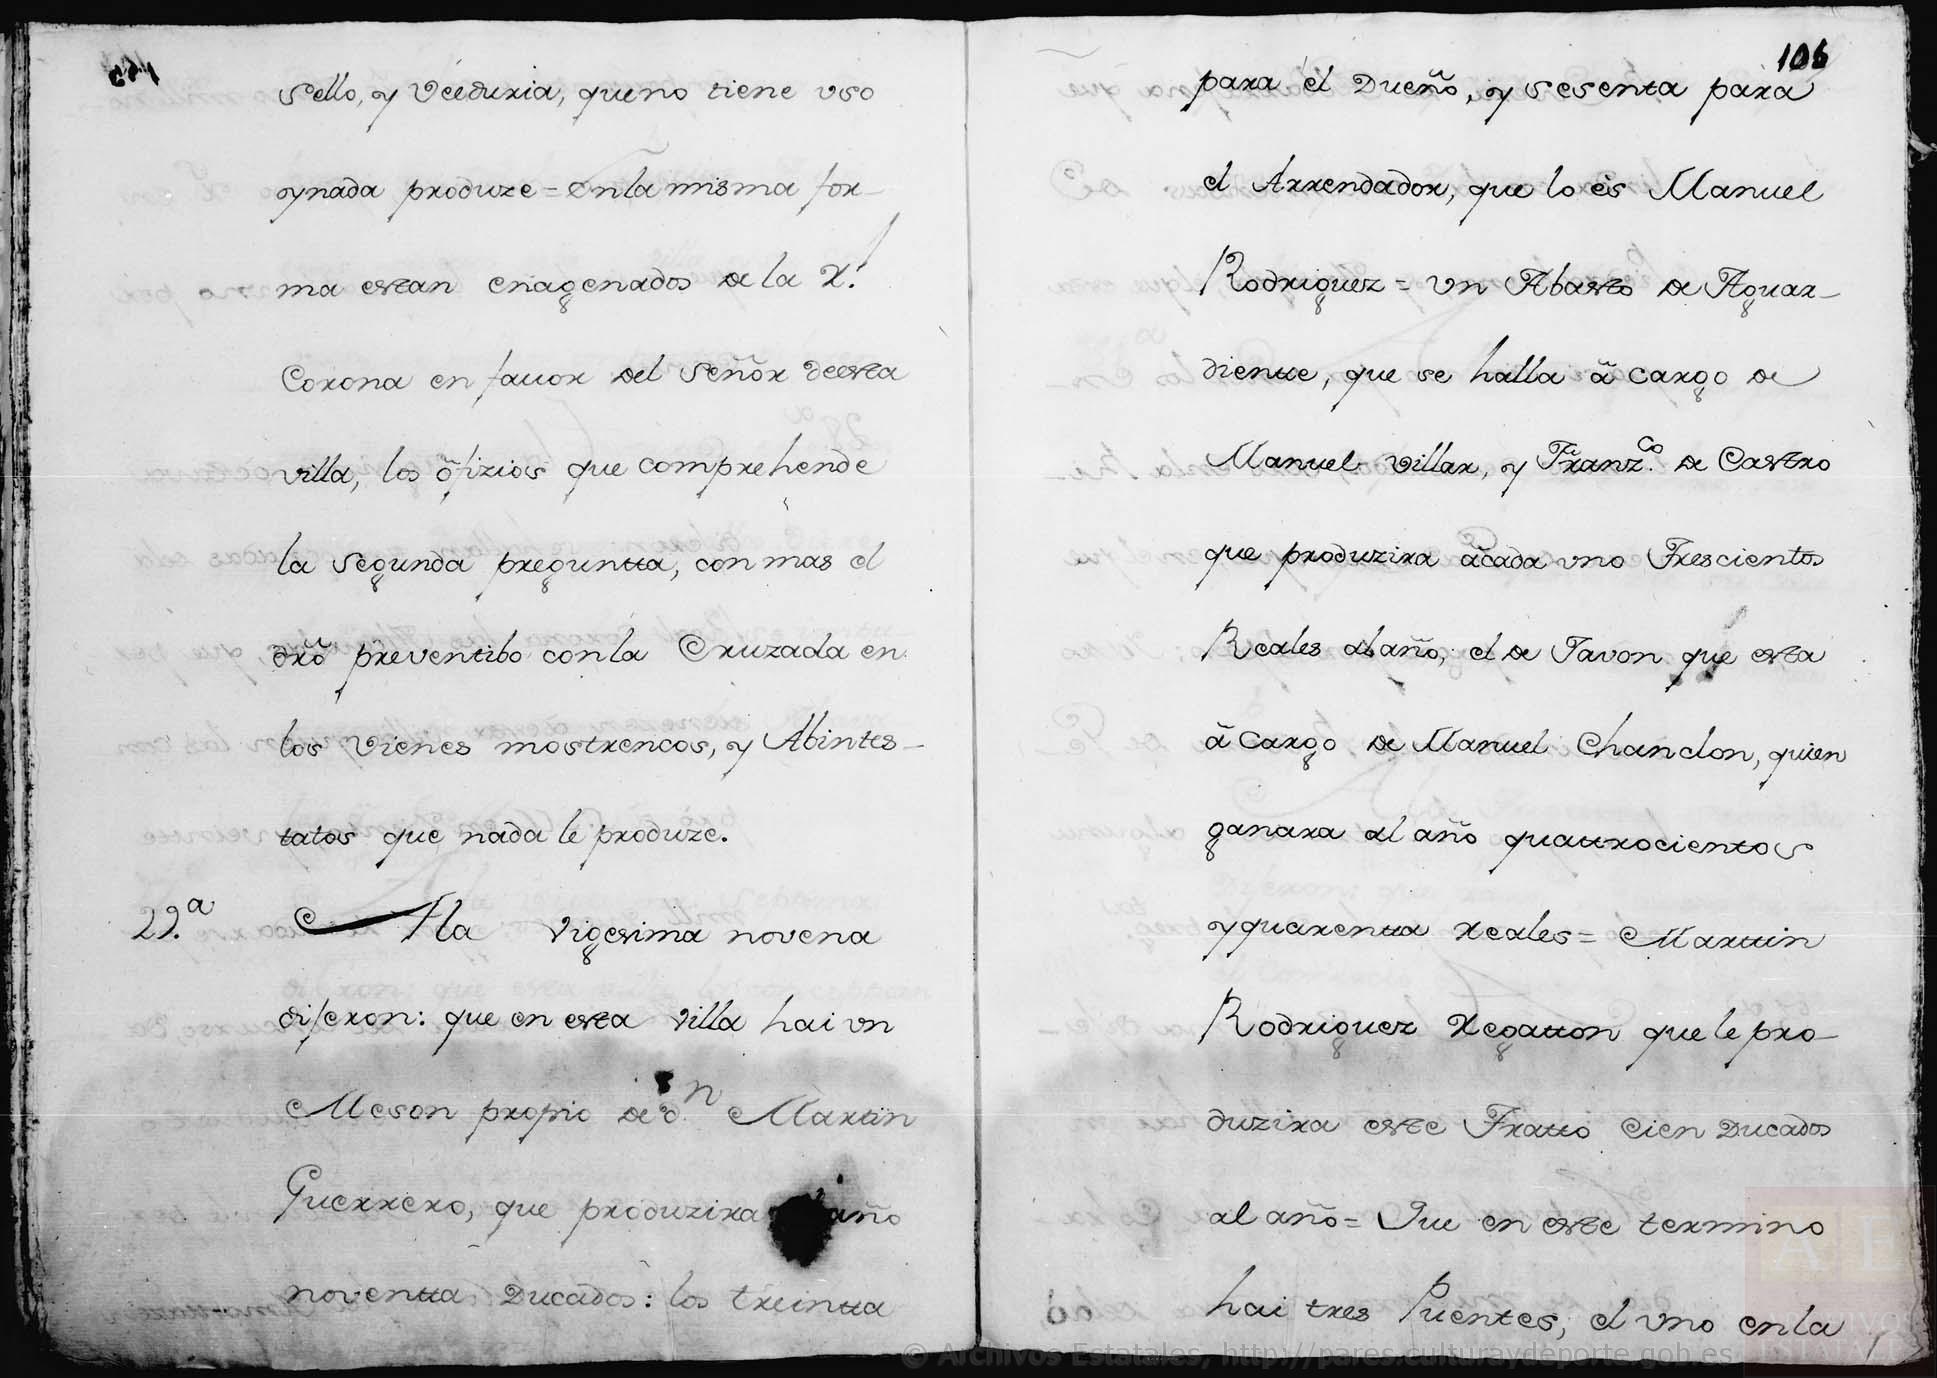 sello, y Veeduria, que no tiene vso
y nada produze = en la misma for-
ma estan enagenados de la Rl.
Corona en fauor del Señor de esta
villa, los ofizios que comprehende
la segunda preguntta, con mas el
dro preventibo con la Cruzada en
los vienes mostrencos, y Abintes-
tatos que nada le produze.
29.a A la Vigesima novena
dijeron: que en esta villa hai vn
Meson propio de dn. Martin
Guerrero, que produzira año
noventta Ducados: los treintta
106
para el Dueño, y sesenta para
el Arrendador, que lo es Manuel
Rodriguez = vn Abasto de Aguar-
diente, que se halla a cargo de
Manuel Villar, y Franzco. de Castro
que produzira a cada vno Trescientos
Reales al año, el de Javon que esta
a cargo de Manuel Chanclon, quien
ganara al año quattrocientos
y quarentta reales = Marttin
Rodriguez Regatton que le pro-
duzira este Tratto cien Ducados
al año = Que en este termino
hai tres Puentes, el vno en la
© Archivos Estatales, http://pares.culturaydeporte.gob.es
AE
ARCHIVOS
ESTATALES